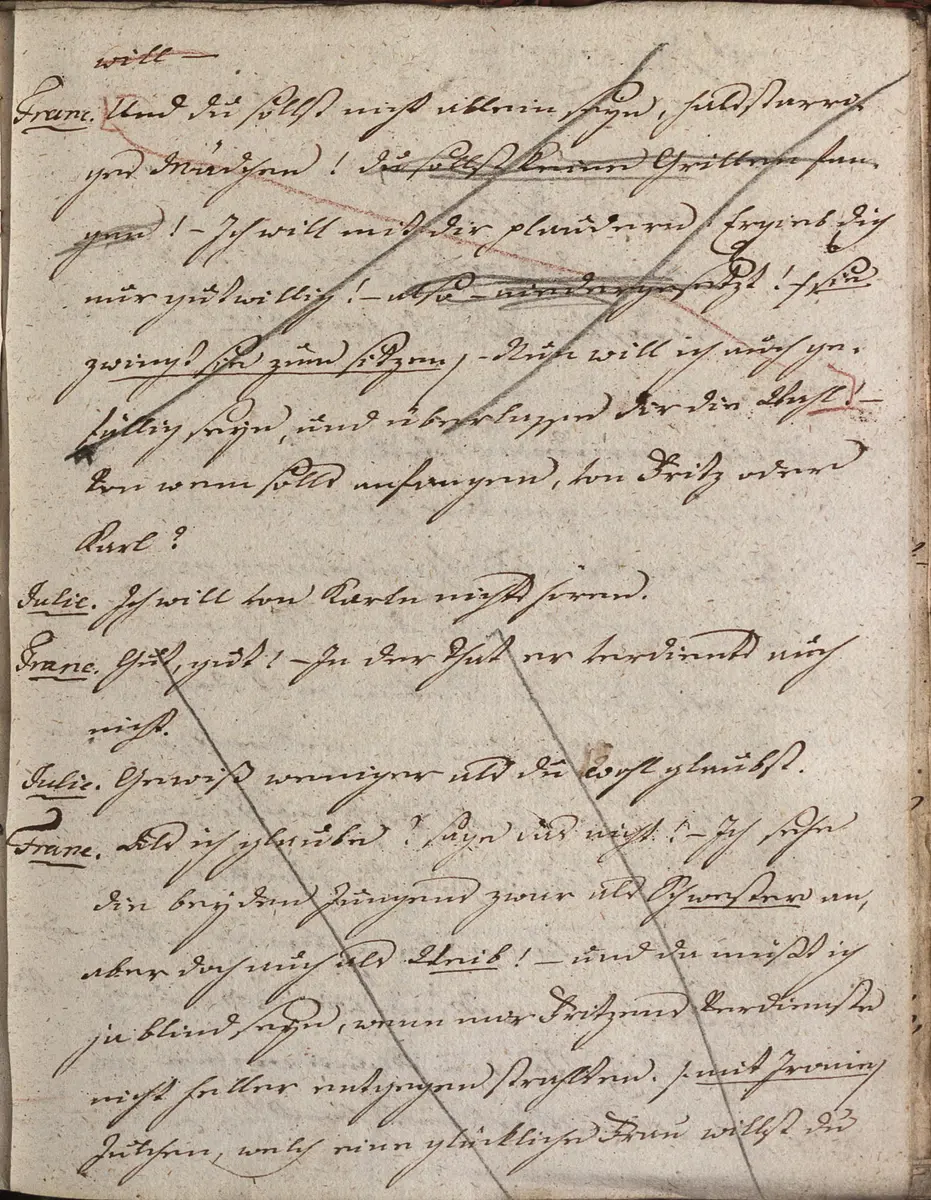 will —
Franc. Und du sollst nicht allein seyn, halsstarri-
ges Mädchen! du sollst keine Grillen fan-
gen! – Ich will mit dir plaudern! Ergieb dich
nur gutwillig! – also – niedergesetzt! /: sie
zwingt sie zum sitzen :/ – Nun will ich auch ge-
fällig seyn, und überlasse dir die Wahl! –
Von wem solls anfangen, von Fritz oder
Karl?
Julie. Ich will von Karln nichts hören.
Franc. Gut, gut! – In der That er verdients auch
nicht.
Julie. Gewiß weniger als du wohl glaubst.
Franc. Als ich glaube? sage das nicht! – Ich sehe
die beyden Jungens zwar als Schwester an,
aber doch auch als Weib! – und da müßt ich
ja blind seyn, wenn mir Fritzens Verdienste
nicht heller entgegen strahlten. /: mit Ironie :/
Julchen, welch eine glückliche Frau willst du